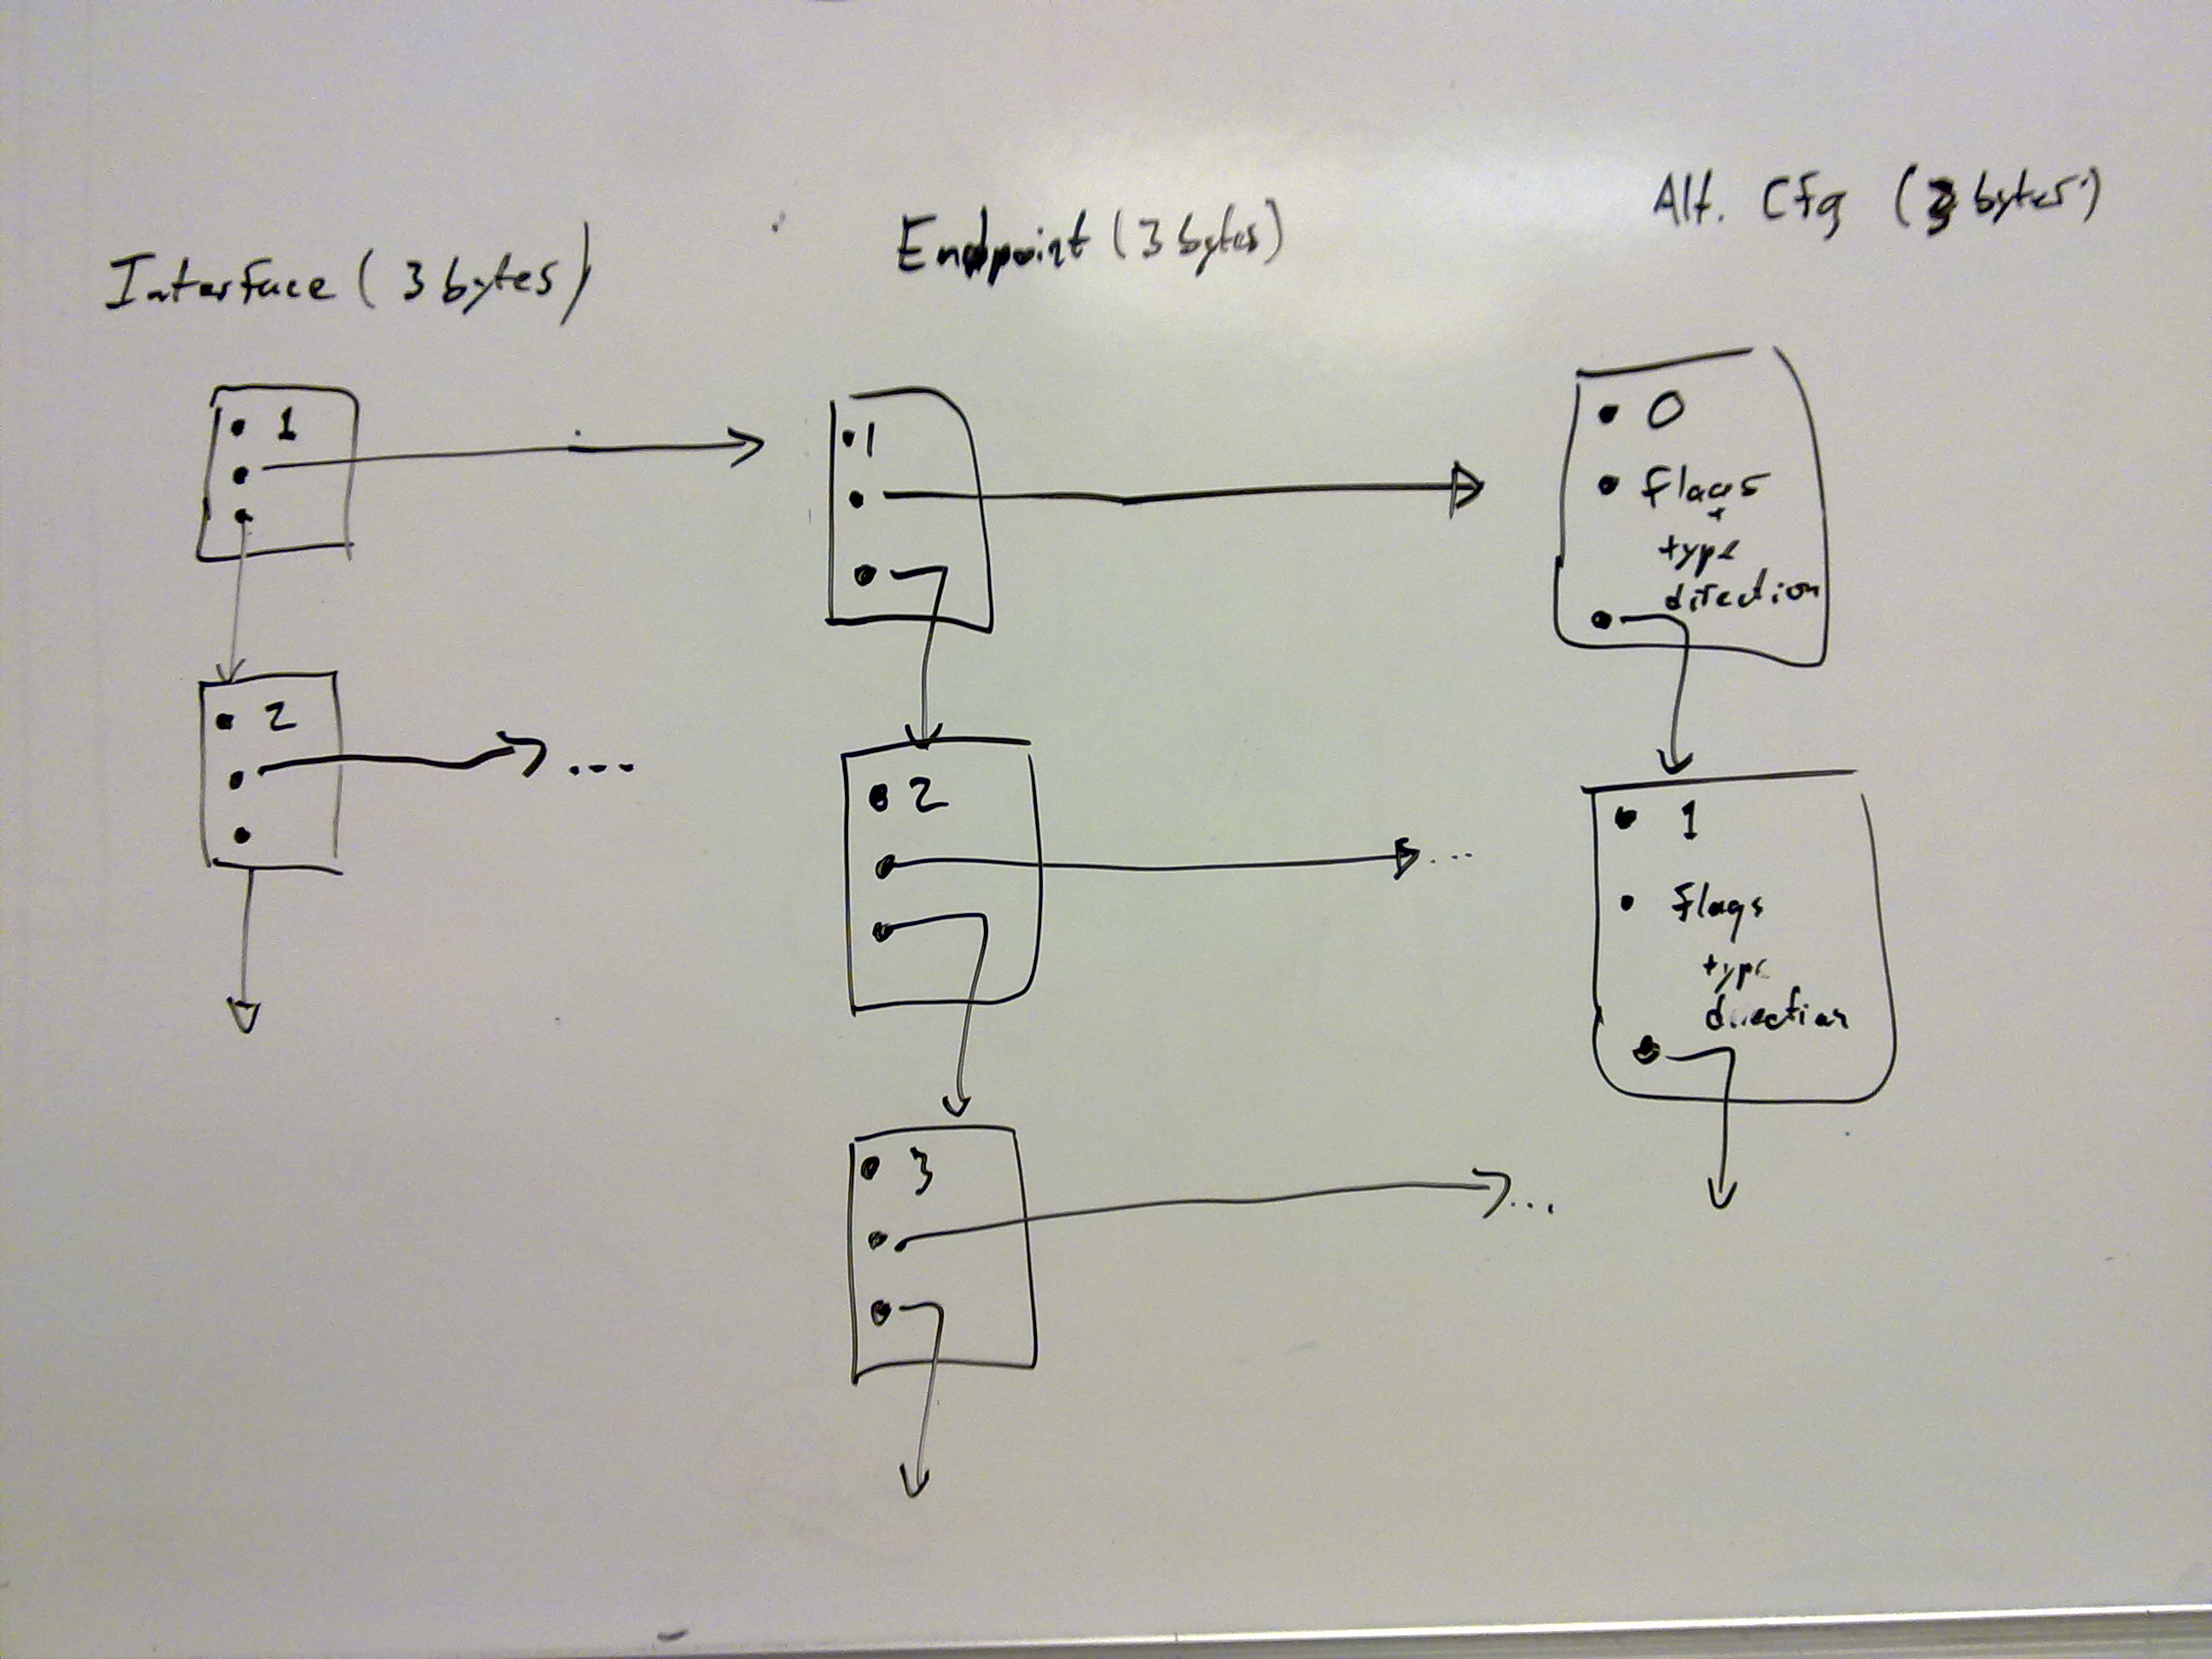 Interface (3 bytes)
1
2
...
Endpoint (3 bytes)
1
2
...
3
...
Alt. Cfg (3 bytes)
0
flags
+
type
direction
1
flags
type
direction